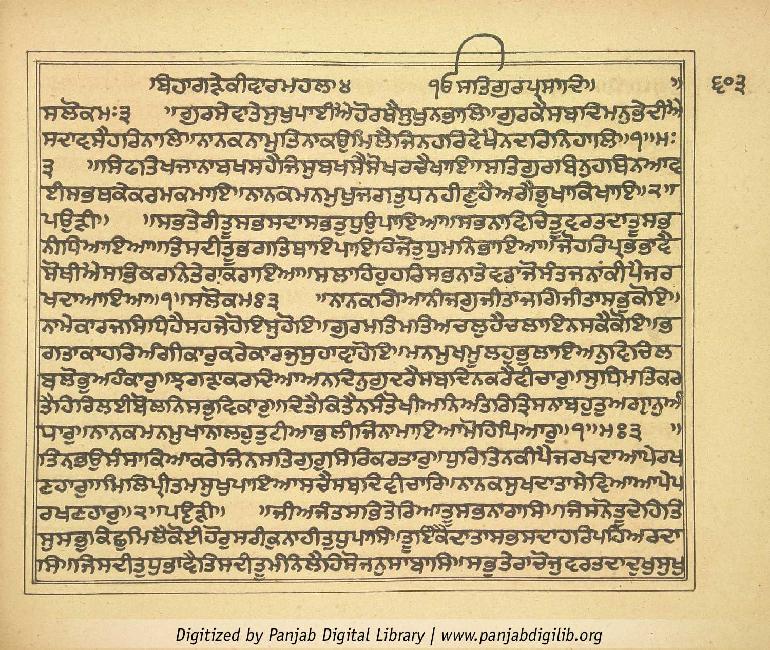 ਬਿਹਾਗੜੇਕੀਵਾਰਮਹਲਾ੪ ੴਸਤਿਗੁਰਪ੍ਰਸਾਦਿ॥ ॥ ੬੦੩
ਸਲੋਕਮਃ੩ ॥ਗੁਰਸੇਵਾਤੇਸੁਖੁਪਾਈਐਹੋਰਥੈਸੁਖੁਨਭਾਲਿ॥ਗੁਰਕੈਸਬਦਿਮਨੁਭੇਦੀਐ
ਸਦਾਵਸੈਹਰਿਨਾਲਿ॥ਨਾਨਕਨਾਮੁਤਿਨਾਕਉਮਿਲੈਜਿਨਹਰਿਵੇਖੈਨਦਰਿਨਿਹਾਲਿ॥੧॥ਮਃ
੩ ॥ਸਿਫਤਿਖਜਾਨਾਬਖਸਹੈਜਿਸੁਬਖਸੈਸੋਖਰਚੈਖਾਇ॥ਸਤਿਗੁਰਬਿਨੁਹਥਿਨਆਵ
ਈਸਭਥਕੇਕਰਮਕਮਾਇ॥ਨਾਨਕਮਨਮੁਖੁਜਗਤੁਧਨਹੀਣੁਹੈਅਗੈਭੁਖਾਕਿਖਾਇ॥੨॥
ਪਉੜੀ॥ ॥ਸਭਤੇਰੀਤੂਸਭਸਦਾਸਭਤੁਧੁਉਪਾਇਆ॥ਸਭਨਾਵਿਚਿਤੂਵਰਤਦਾਤੂਸਭ
ਨੀਧਿਆਇਆ॥ਤਿਸਦੀਤੂਭਗਤਿਥਾਇਪਾਇਹਿਜੋਤੁਧੁਮਨਿਭਾਇਆ॥ਜੋਹਰਿਪ੍ਰਭਭਾਵੈ
ਸੋਥੀਐਸਭਿਕਰਨਿਤੇਰਾਕਰਾਇਆ॥ਸਲਾਹਿਹੁਹਰਿਸਭਨਾਤੇਵਡਾਜੋਸੰਤਜਨਾਂਕੀਪੈਜਰ
ਖਦਾਆਇਆ॥੧॥ਸਲੋਕਮਃ੩ ॥ਨਾਨਕਗਿਆਨੀਜਗੁਜੀਤਾਜਗਿਜੀਤਾਸਭੁਕੋਇ॥
ਨਾਮੇਕਾਰਜਸਿਧਿਹੈਸਹਜੇਹੋਇਸੁਹੋਇ॥ਗੁਰਮਤਿਮਤਿਅਚਲੁਹੈਚਲਾਇਨਸਕੈਕੋਇ॥ਭ
ਗਤਾਕਾਹਰਿਅੰਗੀਕਾਰੁਕਰੇਕਾਰਜੁਸੁਹਾਵਾਹੋਇ॥ਮਨਮੁਖਮੂਲਹੁਭੁਲਾਇਅਨੁਵਿਚਿਲ
ਬੁਲੋਭੁਅਹੰਕਾਰੁ॥ਝਗੜਾਕਰਦਿਆਅਨਦਿਨੁਗੁਦਰੈਸਬਦਿਨਕਰੈਵੀਚਾਰੁ॥ਸੁਧਿਮਤਿਕਰ
ਤੈਹਿਰਿਲਈਬੋਲਨਿਸਭੁਵਿਕਾਰੁ॥ਦਿਤੈਕਿਤੈਨਸੰਤੋਖੀਅਨਿਅੰਤਰਿਤ੍ਰਿਸਨਾਬਹੁਤੁਅਗ੍ਯਾਨੁਅੰ
ਧਾਰੁ॥ਨਾਨਕਮਨਮੁਖਾਨਾਲਹੁਤੁਟੀਆਭਲੀਜਿਨਾਮਾਇਆਮੋਹਿਪਿਆਰੁ॥੧॥ਮਃ੩ ॥
ਤਿਨਭਉਸੰਸਾਕਿਆਕਰੇਜਿਨਸਤਿਗੁਰੁਸਿਰਿਕਰਤਾਰੁ॥ਧੁਰਿਤਿਨਕੀਪੈਜਰਖਦਾਆਪੇਰਖ
ਣਹਾਰੁ॥ਮਿਲਿਪ੍ਰੀਤਮਸੁਖੁਪਾਇਆਸਚੈਸਬਦਿਵੀਚਾਰਿ॥ਨਾਨਕਸੁਖਦਾਤਾਸੇਵਿਆਆਪੇਪ
ਰਖਣਹਾਰੁ॥੨॥ਪਵੁੜੀ॥ ॥ਜੀਅਜੰਤਸਭਿਤੇਰਿਆਤੂਸਭਨਾਰਾਸਿ॥ਜਿਸਨੋਤੂਦੇਹਿਤਿ
ਸੁਸਭੁਕਿਛੁਮਿਲੈਕੋਈਹੋਰੁਸਰੀਕੁਨਾਹੀਤੁਧੁਪਾਸਿ॥ਤੂਇਕੋਦਾਤਾਸਭਸਦਾਹਰਿਪਹਿਅਰਦਾ
ਸਿ॥ਜਿਸਦੀਤੁਧੁਭਾਵੈਤਿਸਦੀਤੂਮੰਨਿਲੈਹਿਸੋਜਨੁਸਾਬਾਸਿ॥ਸਭੁਤੇਰਾਚੋਜੁਵਰਤਦਾਦੁਖੁਸੁਖੁ
Digitized by Panjab Digital Library | www.panjabdigilib.org